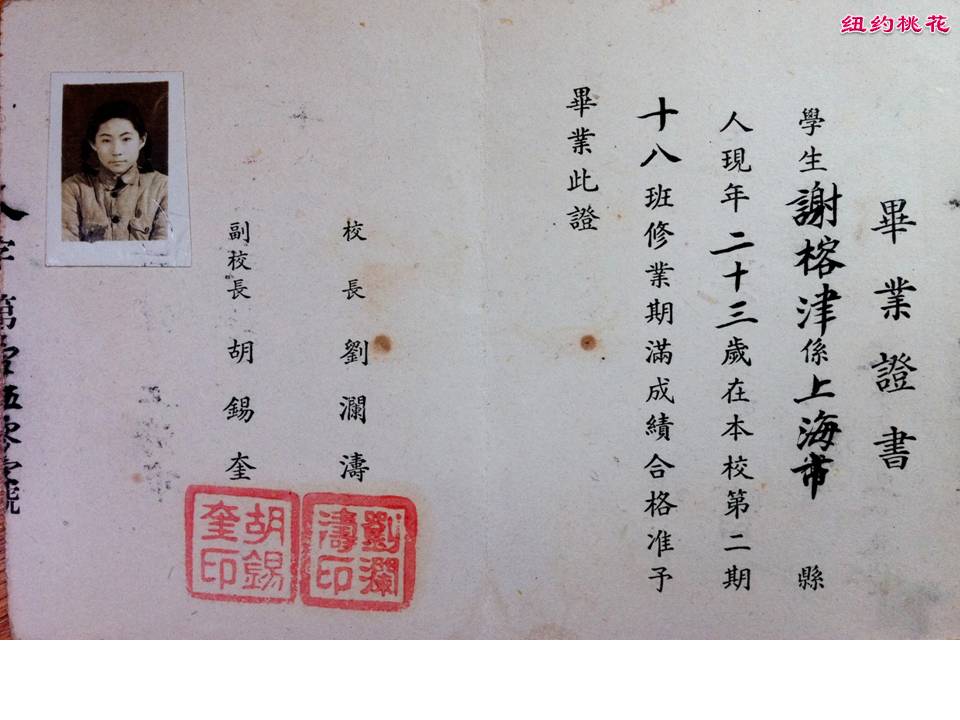 纽约桃花
畢業證書
學生謝榕津係上海市縣
人現年二十三歲在本校第二期
十八班修業期滿成績合格准予
畢業此證
校長劉瀾濤
副校長胡錫奎
劉瀾濤印
胡錫奎印
人字第壹伍零零號